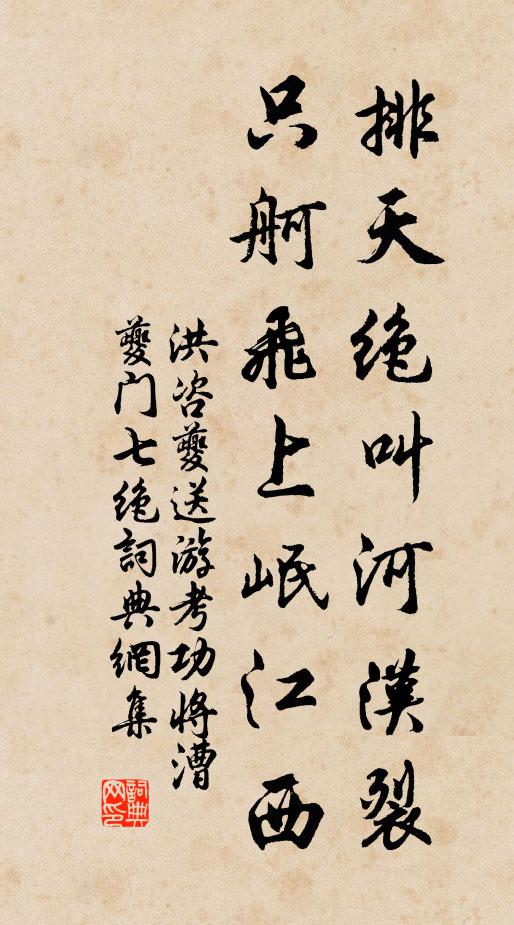 排天绝叫河漢裂
只舸飛上岷江西
洪咨夔送游考功將漕
夔门七绝詞典網集
詞典
网印